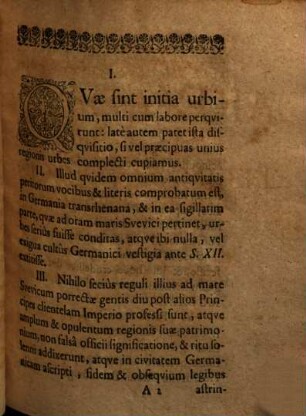 I.
QVæ sint initia urbi-
um, multi cum labore perqvi-
runt: latè autem patet ista dis-
qvisitio, si vel præcipuas unius
regionis urbes complecti cupiamus.
II. Illud qvidem omnium antiqvitatis
peritorum vocibus & literis comprobatum est,
in Germania transrhenana, & in ea sigillatim
parte, qvæ ad oram maris Svevici pertinet, ur-
bes seriùs fuisse conditas, atqve ibi nulla, vel
exigua cultûs Germanici vestigia ante S. XII.
extitisse.
III. Nihilo seciùs reguli illius ad mare
Svevicum porrectæ gentis diu post alios Prin-
cipes clientelam Imperio professi sunt, atqve
amplum & opulentum regionis suæ patrimo-
nium, non falsâ officii significatione, & ritu so-
lenni addixerunt, atqve in civitatem Germa-
nicam ascripti, fidem & obseqvium legibus
A 2 astrin-